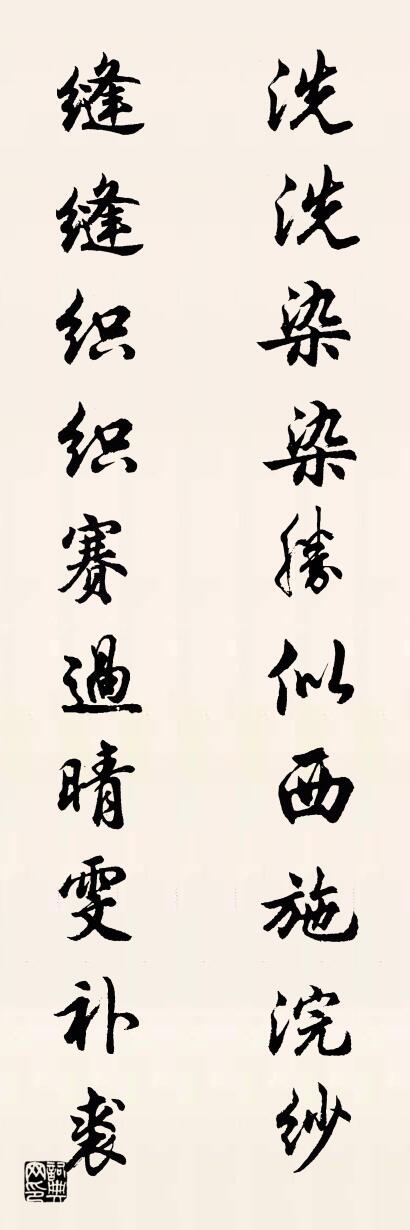 洗洗染染勝似西施浣紗
缝缝织织賽過晴雯补裘
詞典網印